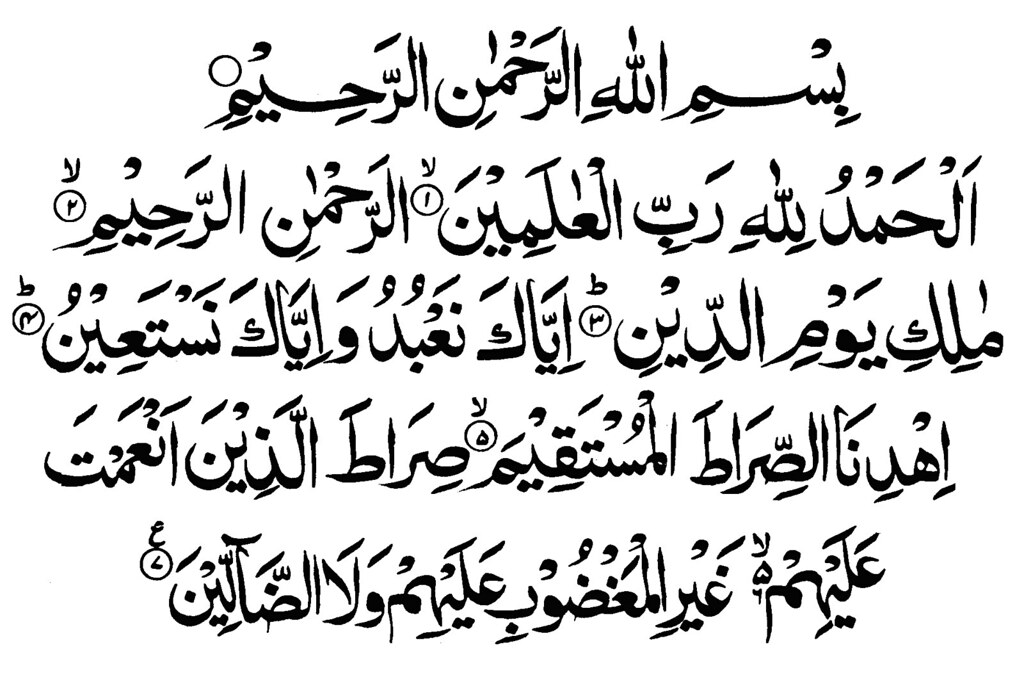 بِسْمِ اللهِ الرَّحْمٰنِ الرَّحِيْمِ ۝
اَلْحَمْدُ لِلّٰهِ رَبِّ الْعٰلَمِيْنَ ۙ‏﴿۱﴾ الرَّحْمٰنِ الرَّحِيْمِ ۙ‏﴿۲﴾
مٰلِكِ يَوْمِ الدِّيْنِ ؕ‏﴿۳﴾ اِيَّاكَ نَعْبُدُ وَاِيَّاكَ نَسْتَعِيْنُ ؕ‏﴿۴﴾
اِهْدِنَا الصِّرَاطَ الْمُسْتَقِيْمَ ۙ‏﴿۵﴾ صِرَاطَ الَّذِيْنَ اَنْعَمْتَ
عَلَيْهِمْ ۙ۬ۦ۵ غَيْرِ الْمَغْضُوْبِ عَلَيْهِمْ وَلَا الضَّآلِّيْنَ ‏﴿۷﴾ ع